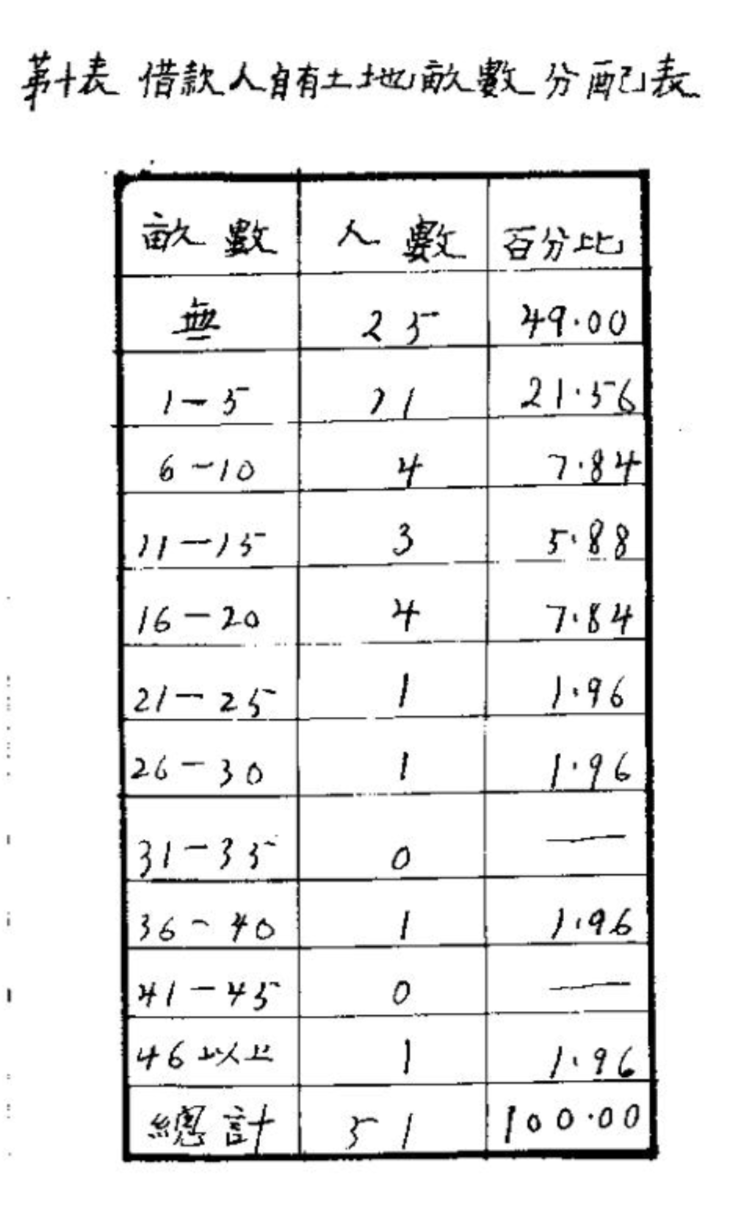 第十表 借款人自有土地畝數分配表
畝數 人數 百分比
無 25 49.00
1-5 11 21.56
6-10 4 7.84
11-15 3 5.88
16-20 4 7.84
21-25 1 1.96
26-30 1 1.96
31-35 0 —
36-40 1 1.96
41-45 0 —
46以上 1 1.96
總計 51 100.00